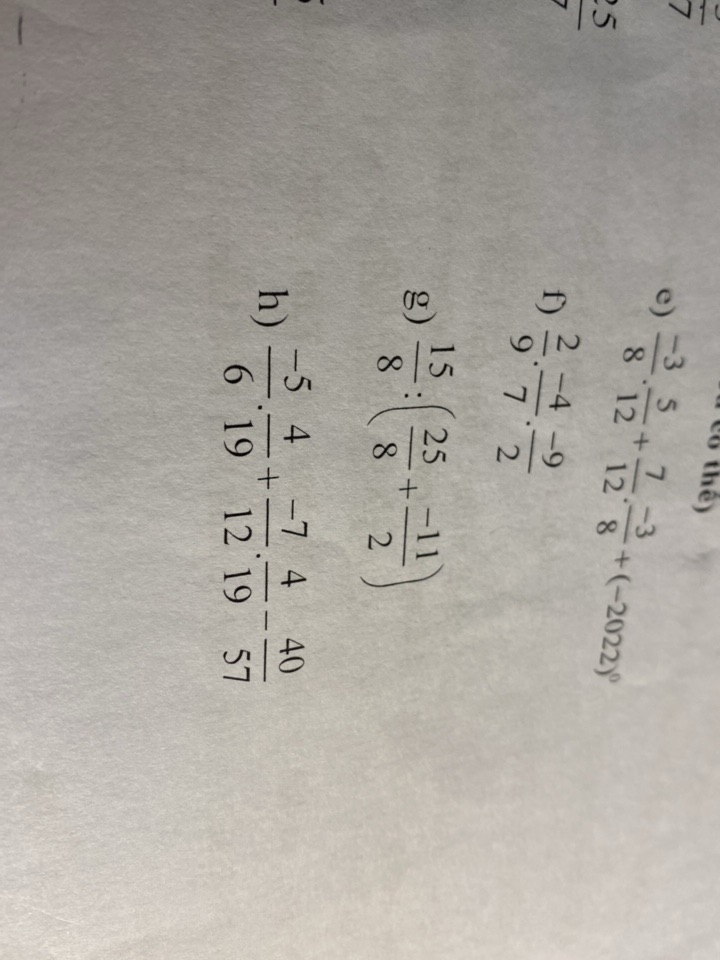 có thể)
e) \frac{-3}{8}.\frac{5}{12}+\frac{7}{12}.\frac{-3}{8}+(-2022)^0
f) \frac{2}{9}.\frac{-4}{7}.\frac{-9}{2}
g) \frac{15}{8}:\left(\frac{25}{8}+\frac{-11}{2}\right)
h) \frac{-5}{6}.\frac{4}{19}+\frac{-7}{12}.\frac{4}{19}-\frac{40}{57}